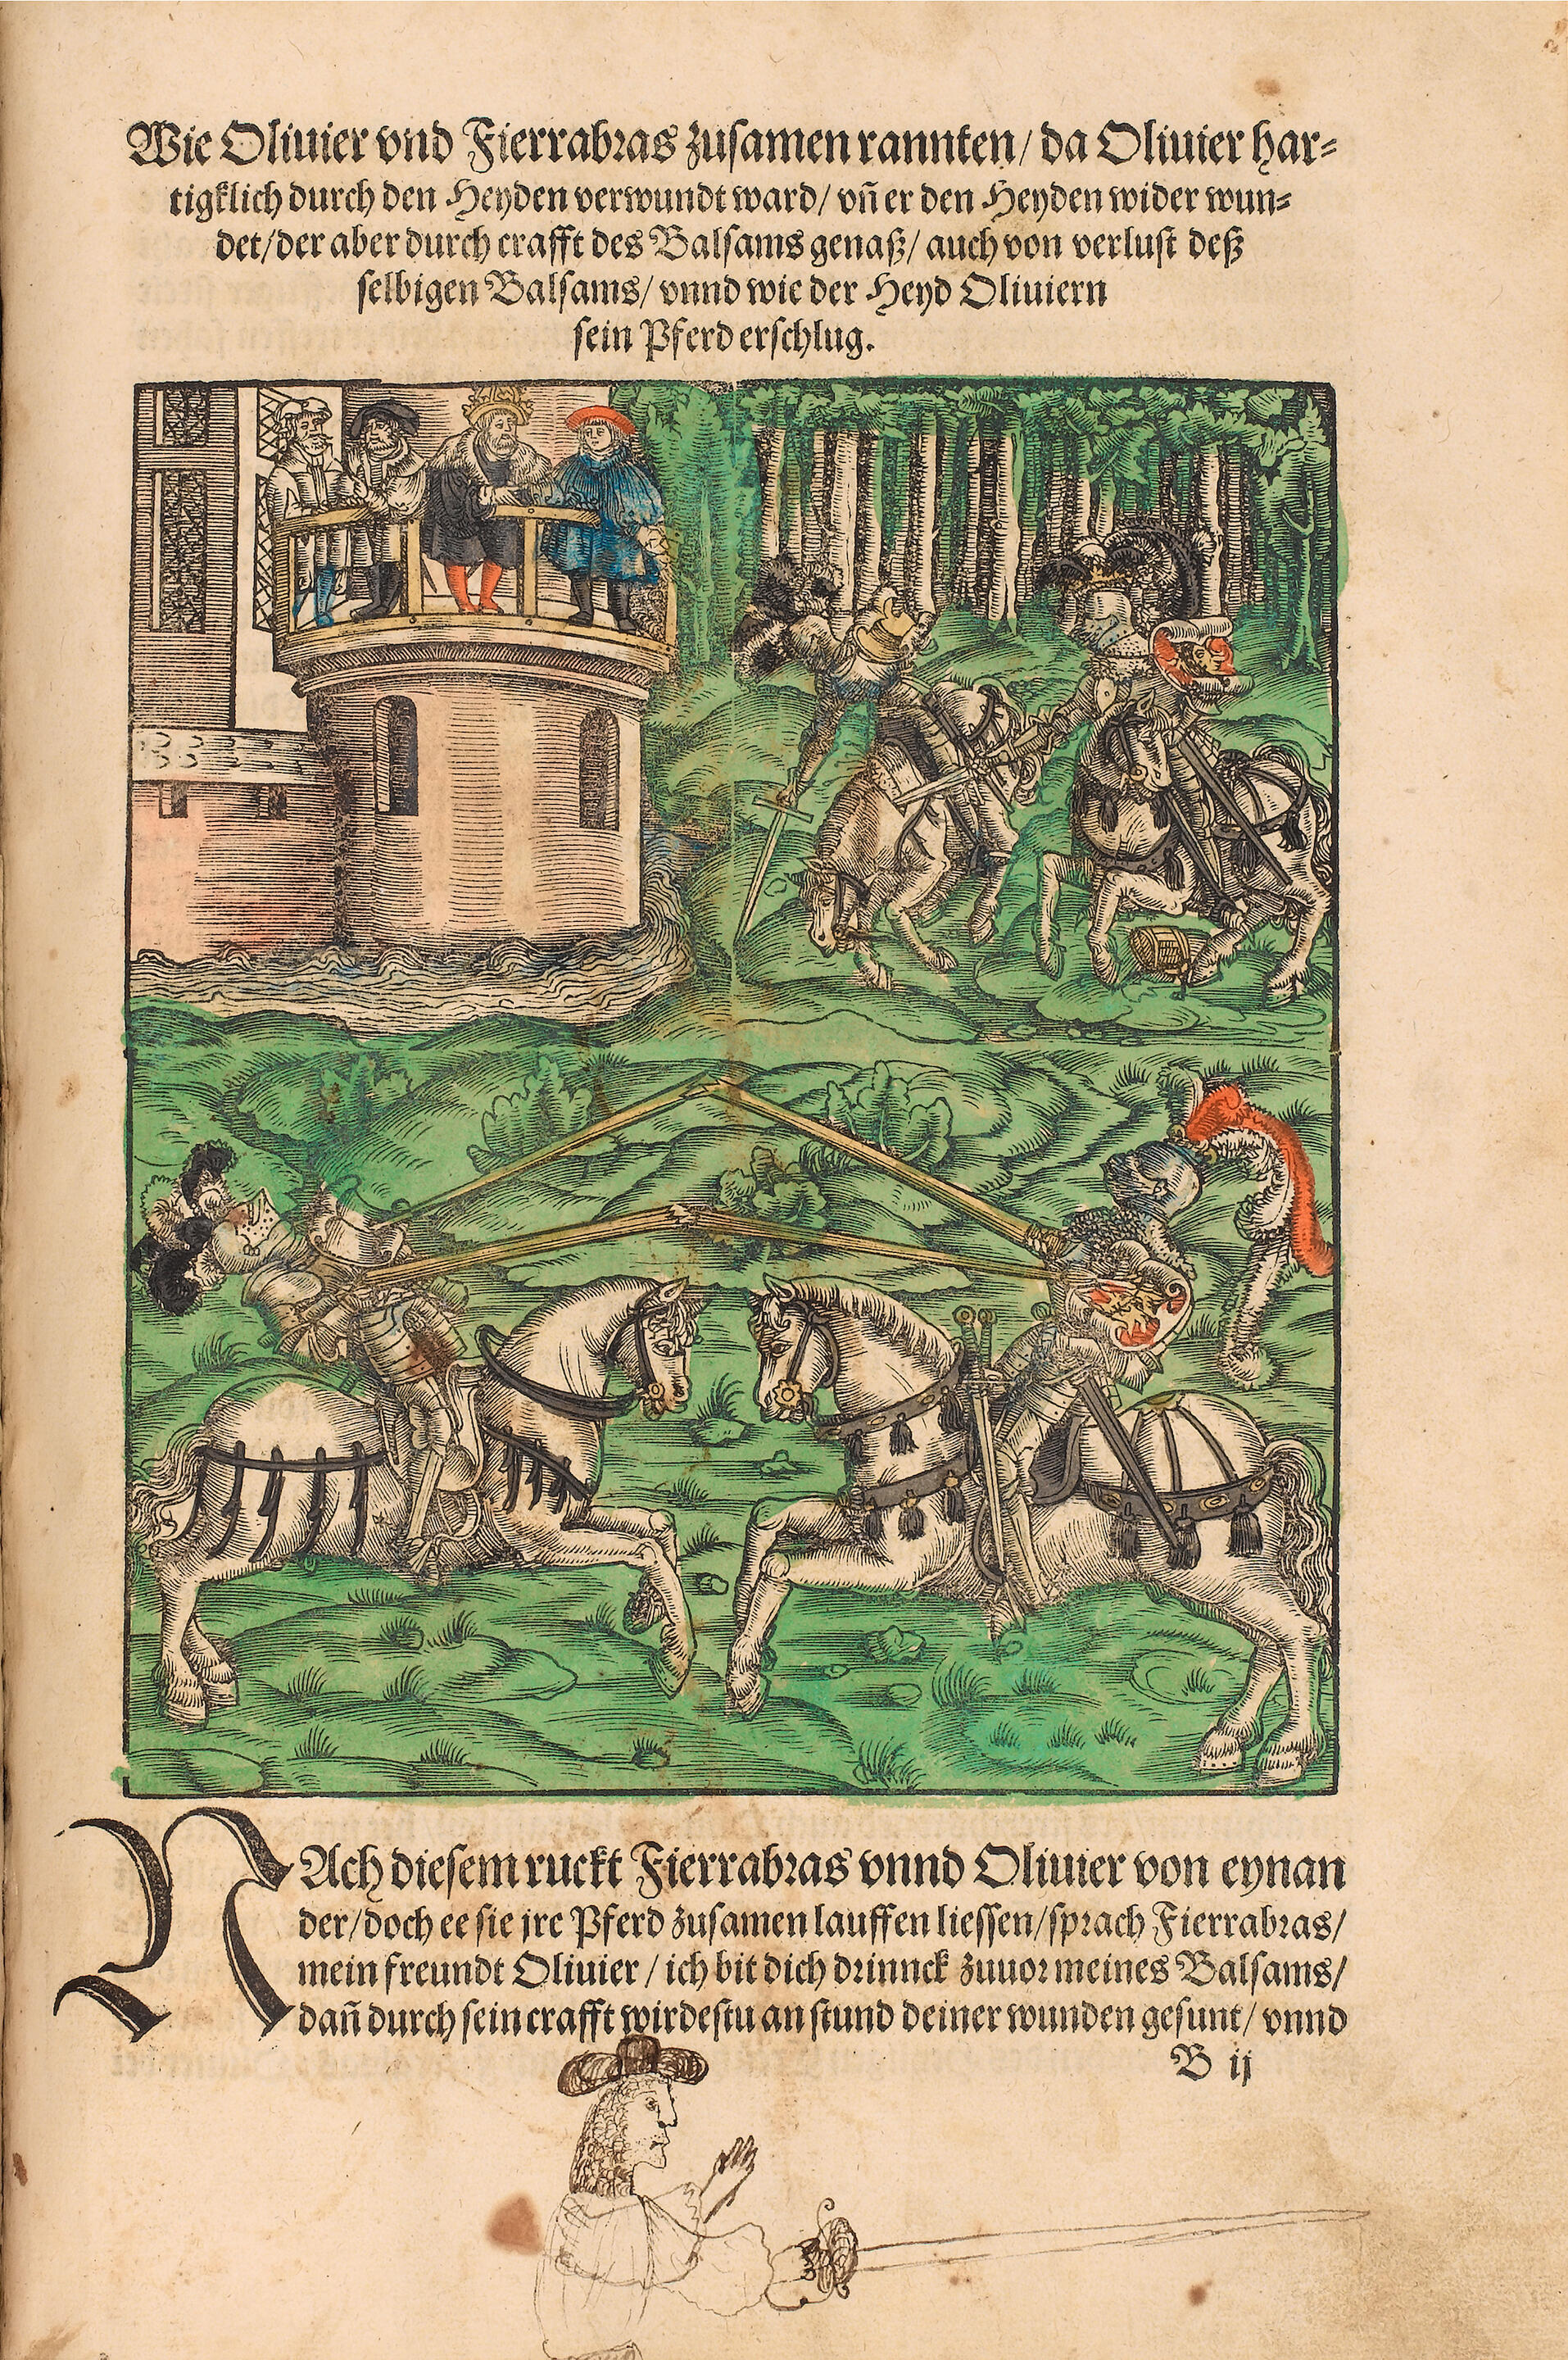 Wie Oliuier vnd Fierrabras zusamen rannten/ da Oliuier har-
tigklich durch den Heyden verwundt ward/ vñ er den Heyden wider wun-
det/ der aber durch crafft des Balsams genaß/ auch von verlust deß
selbigen Balsams/ vnnd wie der Heyd Oliuiern
sein Pferd erschlug.
NAch diesem ruckt Fierrabras vnnd Oliuier von eynan
der/ doch ee sie jre Pferd zusamen lauffen liessen/ sprach Fierrabras/
mein freundt Oliuier/ ich bit dich drinnck zuuor meines Balsams/
dañ durch sein crafft wirdestu an stund deiner wunden gesunt/ vnnd
B ij